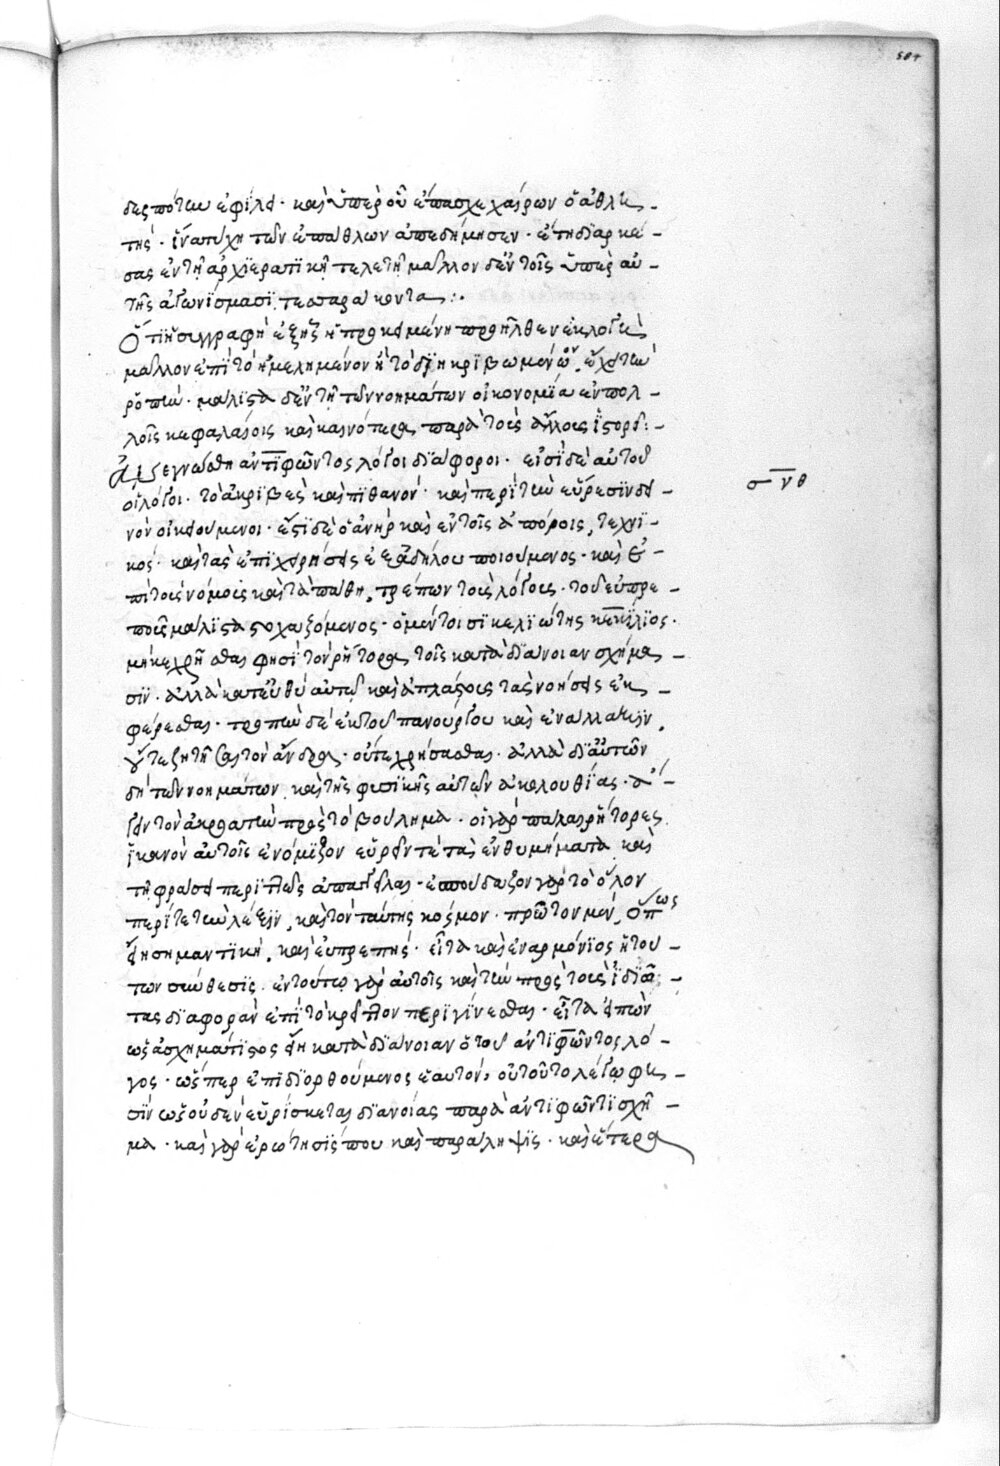 584
δεσπότην ἐφίλει· καὶ ὑπὲρ οὗ ἔπασχε χαίρων ὁ ἀθλη
τής· ἵνα τύχῃ τῶν ἐπάθλων ἀπεδήμησεν· ἔτη διαρκέ
σας ἐν τῇ ἀρχιερατικῇ τελετῇ μᾶλλον δὲ ἐν τοῖς ὑπὲρ αὐ
τῆς ἀγωνίσμασι τεσσαράκοντα:
Ὅτι ἡ συγγραφὴ ἐξ ἧς ἡ προκειμένη προῆλθεν ἐκλογὴ
μᾶλλον ἐπὶ τὸ ἠμελημένον ἢ τὸ διηκριβωμένον, εἶχε τὴν
ῥοπήν· μάλιστα δὲ ἐν τῇ τῶν νοημάτων οἰκονομίᾳ ἐν πολ
λοῖς κεφαλαίοις καὶ καινότερα παρὰ τοὺς ἄλλους ἱστορεῖ:
Ἀνεγνώσθη ἀντιφῶντος λόγοι διάφοροι· εἰσὶ δὲ αὐτοῦ
σνθ
οἱ λόγοι· τὸ ἀκριβὲς καὶ πιθανόν· καὶ περὶ τὴν εὕρεσιν δει
νὸν οἰκειούμενοι· ἔστι δὲ ὁ ἀνὴρ καὶ ἐν τοῖς ἀπόροις, τεχνι
κός· καὶ τὰς ἐπιχειρήσεις ἐξ ἀδήλου ποιούμενος· καὶ ἐ
πὶ τοὺς νόμους καὶ τὰ πάθη, τρέπων τοὺς λόγους· τοῦ εὐπρε
ποῦς μάλιστα στοχαζόμενος· ὁ μέντοι σικελιώτης κεκίλιος·
μὴ κεχρῆσθαι φησὶ τὸν ῥήτορα τοῖς κατὰ διάνοιαν σχήμα
σιν· ἀλλὰ κατευθὺ αὐτῷ καὶ ἀπλάστους τὰς νοήσεις ἐκ
φέρεσθαι· τροπὴν δὲ ἐκ τοῦ πανούργου καὶ ἐνάλλαξιν,
οὔτε ζητῆσαι τὸν ἄνδρα· οὔτε χρήσασθαι· ἀλλὰ δι' αὐτῶν
δὴ τῶν νοημάτων καὶ τῆς φυσικῆς αὐτῶν ἀκολουθίας· ἄ
γειν τὸν ἀκροατὴν πρὸς τὸ βούλημα· οἱ γὰρ πάλαι ῥήτορες
ἱκανὸν αὐτοῖς ἐνόμιζον εὑρεῖν τε τὰ ἐνθυμήματα καὶ
τῇ φράσει περιττῶς ἀπαγγεῖλαι· ἐσπούδαζον γὰρ τὸ ὅλον
περί τε τὴν λέξιν, καὶ τὸν ταύτης κόσμον· πρῶτον μὲν, ὅπως
εἴη σημαντική, καὶ εὐπρεπής· εἶτα καὶ ἐναρμόνιος ἡ τού
των σύνθεσις. ἐν τούτῳ γὰρ αὐτοῖς καὶ τὴν πρὸς τοὺς ἰδιώ
τας διαφορὰν ἐπὶ τὸ κρεῖττον περιγίνεσθαι· εἶτα εἰπὼν
ὡς ἀσχημάτιστος εἴη κατὰ διάνοιαν ὁ τοῦ ἀντιφῶντος λό
γος· ὥσπερ ἐπιδιορθούμενος ἑαυτόν, οὐ τοῦτο λέγω φη
σίν ὡς οὐδὲν εὑρίσκεται διανοίας παρὰ ἀντιφῶντι σχῆ
μα· καὶ γὰρ ἐρώτησίς που καὶ παράληψις· καὶ ἕτερα